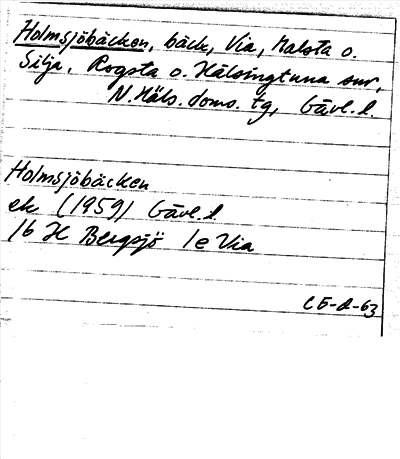 Holmsjöbäcken, bäck, Via, Malsta o.
Silja, Rogsta o. Hälsingtuna snr,
N. Häls. doms. tg, Gävl. l.
Holmsjöbäcken
ek (1959) Gävl. l.
16 H Bergsjö 1e Via
CE-d-63